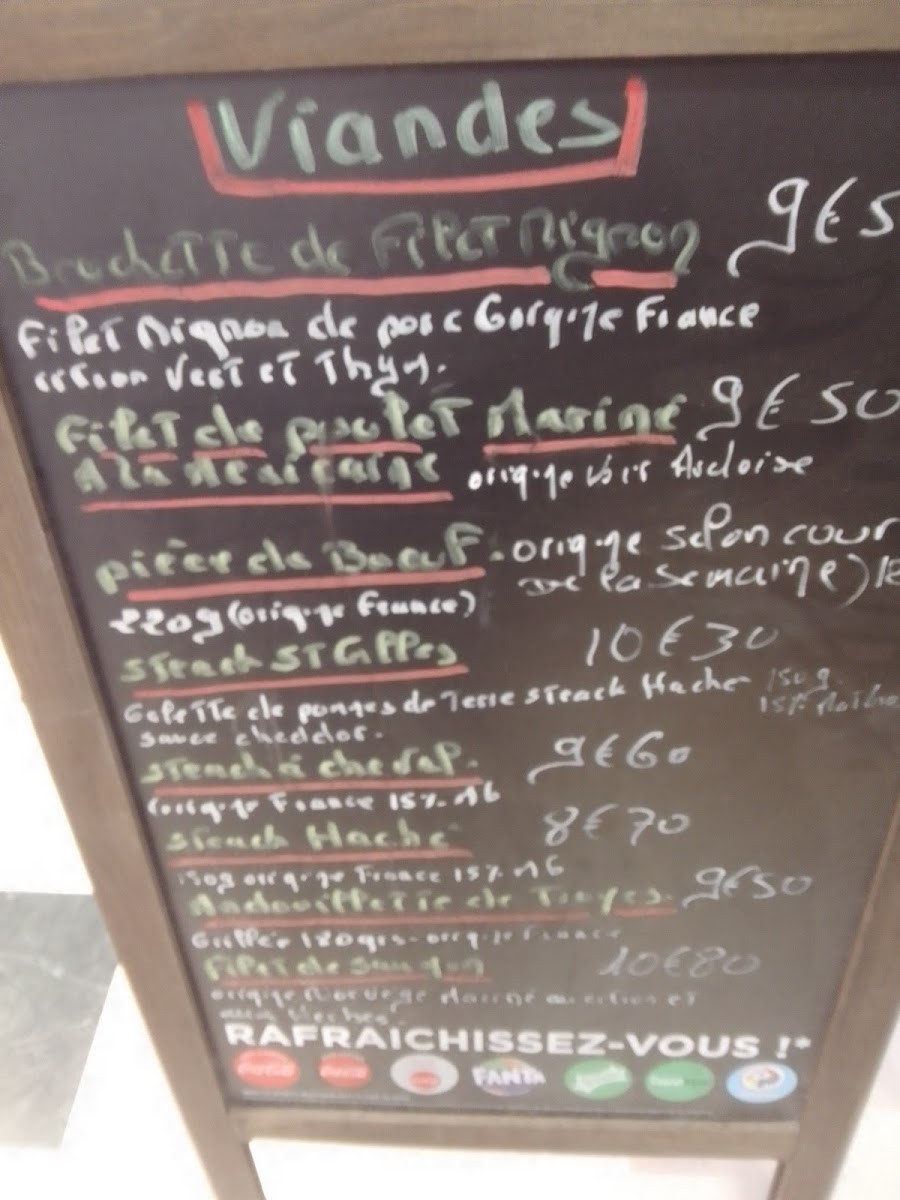 Viandes
Brochette de Filet Mignon 9€5
Filet Mignon de porc Origine France
citron Vert et Thym.
Filet de poulet Mariné 9€50
A la Mexicaine origine voir Ardoise
pièce de Boeuf. origine selon cour
De la Semaine)
220g (origine France)
Steack ST Gilles 10€30
Galette de pommes de Terre steack Haché 150g
sauce cheddar. 15%
Steack à cheval. 9€60
(origine France 15% MG
Steack Haché 8€70
150g origine France 15% MG
Andouillette de Troyes 9€50
Grillée 180grs origine France
Filet de Saumon 10€80
origine Norvège Mariné au citron et
RAFRAICHISSEZ-VOUS !*
FANTA